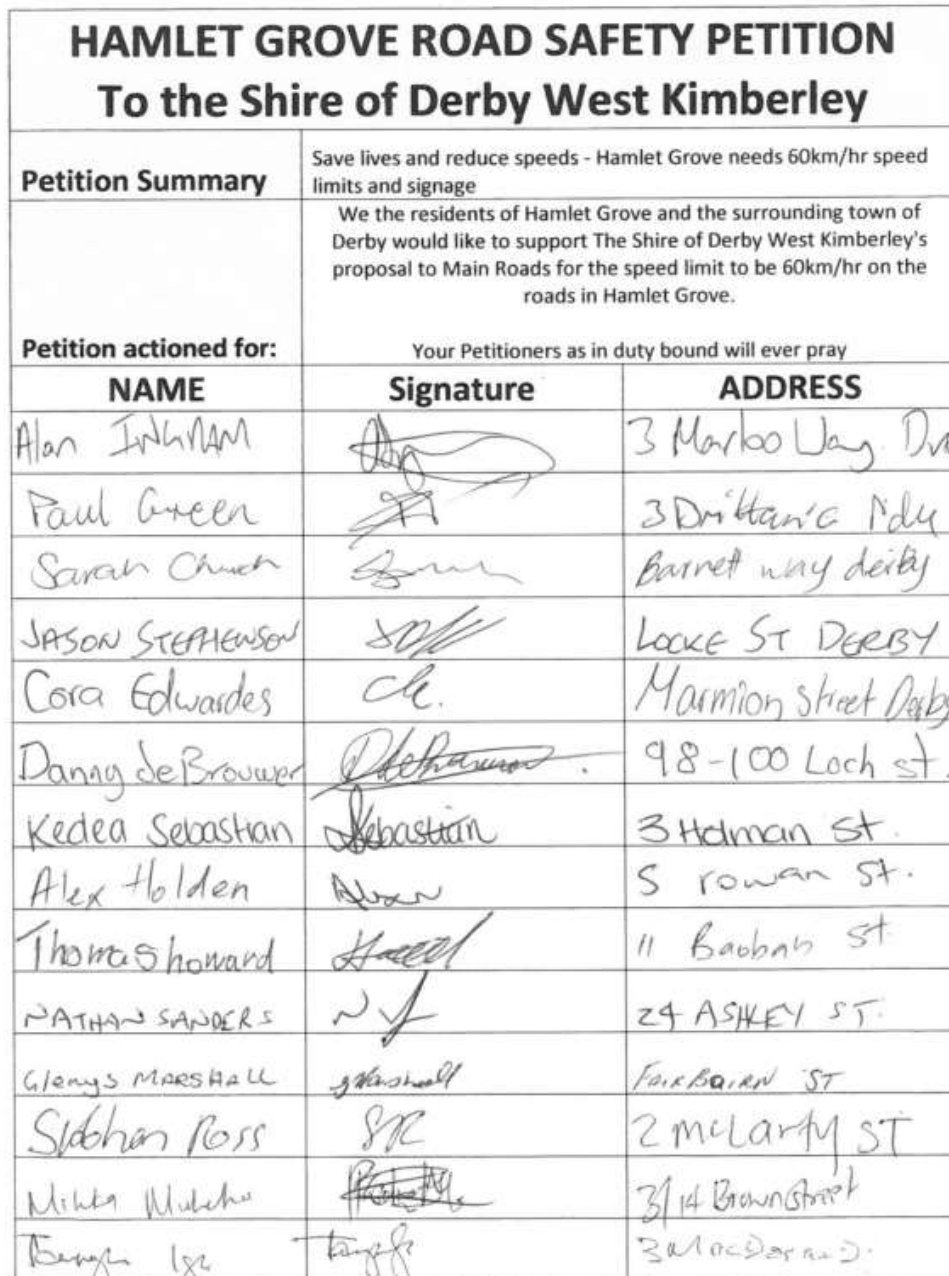 HAMLET GROVE ROAD SAFETY PETITION
To the Shire of Derby West Kimberley
Petition Summary
Save lives and reduce speeds - Hamlet Grove needs 60km/hr speed
limits and signage
We the residents of Hamlet Grove and the surrounding town of
Derby would like to support The Shire of Derby West Kimberley's
proposal to Main Roads for the speed limit to be 60km/hr on the
roads in Hamlet Grove.
Petition actioned for:
Your Petitioners as in duty bound will ever pray
NAME Signature ADDRESS
Alan 3 Marloo Way
Paul Green 3
Sarah Church Barnett way derby
JASON STEPHENSON LOCKE ST DERBY
Cora Edwardes Ce. Marmion Street Derby
Danny de Brouwer 98-100 Loch st.
Kedea Sebastian Sebastian 3 Holman St.
Alex Holden 5 rowan St.
Thomas howard 11 St
NATHAN SANDERS 24 ASHLEY ST.
Glenys MARSHALL gMarshall FairBairn ST
Siobhan Ross SR 2 mcLarty ST
3/14 Brown Street